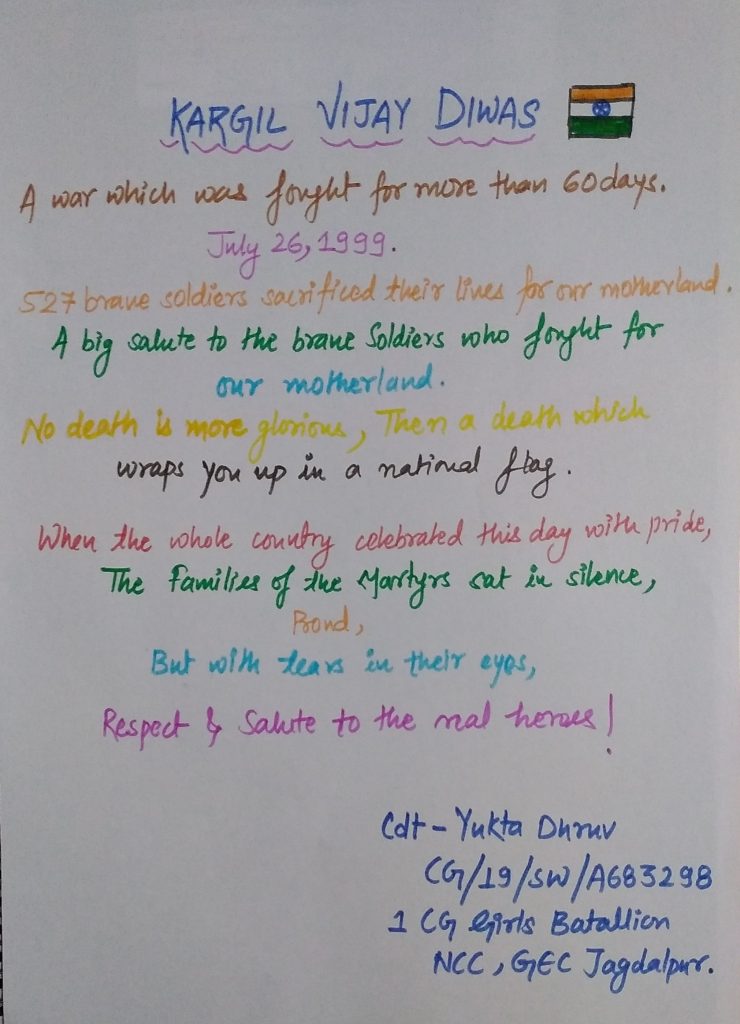 KARGIL VIJAY DIWAS
A war which was fought for more than 60 days.
July 26, 1999.
527 brave soldiers sacrificed their lives for our motherland.
A big salute to the brave Soldiers who fought for
our motherland.
No death is more glorious, Then a death which
wraps you up in a national flag.
When the whole country celebrated this day with pride,
The families of the Martyrs sat in silence,
Proud,
But with tears in their eyes,
Respect & Salute to the real heroes!
Cdt - Yukta Dhruv
CG/19/SW/A683298
1 CG Girls Batallion
NCC, GEC Jagdalpur.